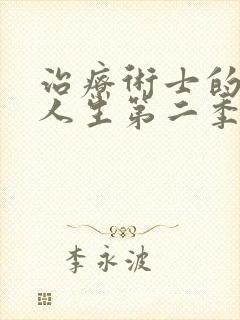 治療術士的
人生第二季
李永波